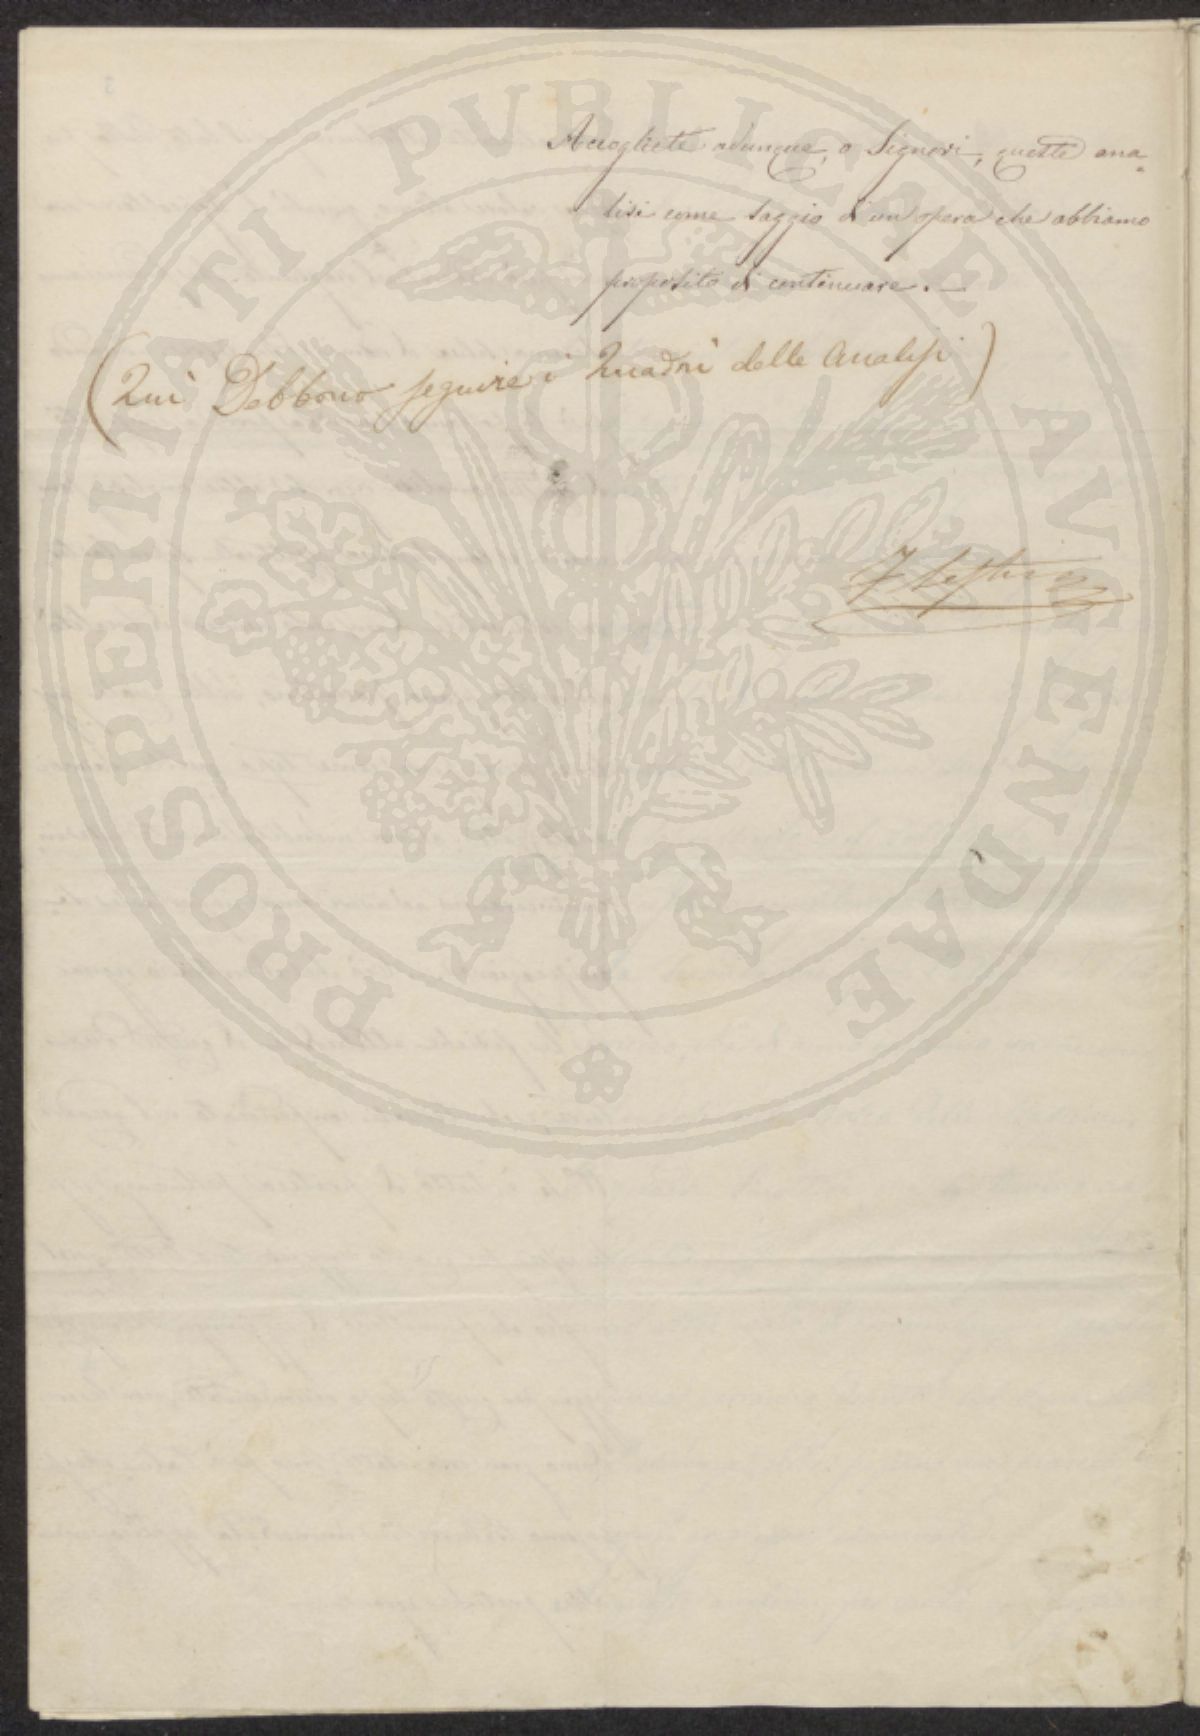 Accogliete adunque, o Signori, queste ana=
lisi come saggio di un opera che abbiamo
proposito di continuare. —
(Qui Debbono seguire i Quadri delle Analisi)
PROSPERITATI PUBLICAE AVGENDAE